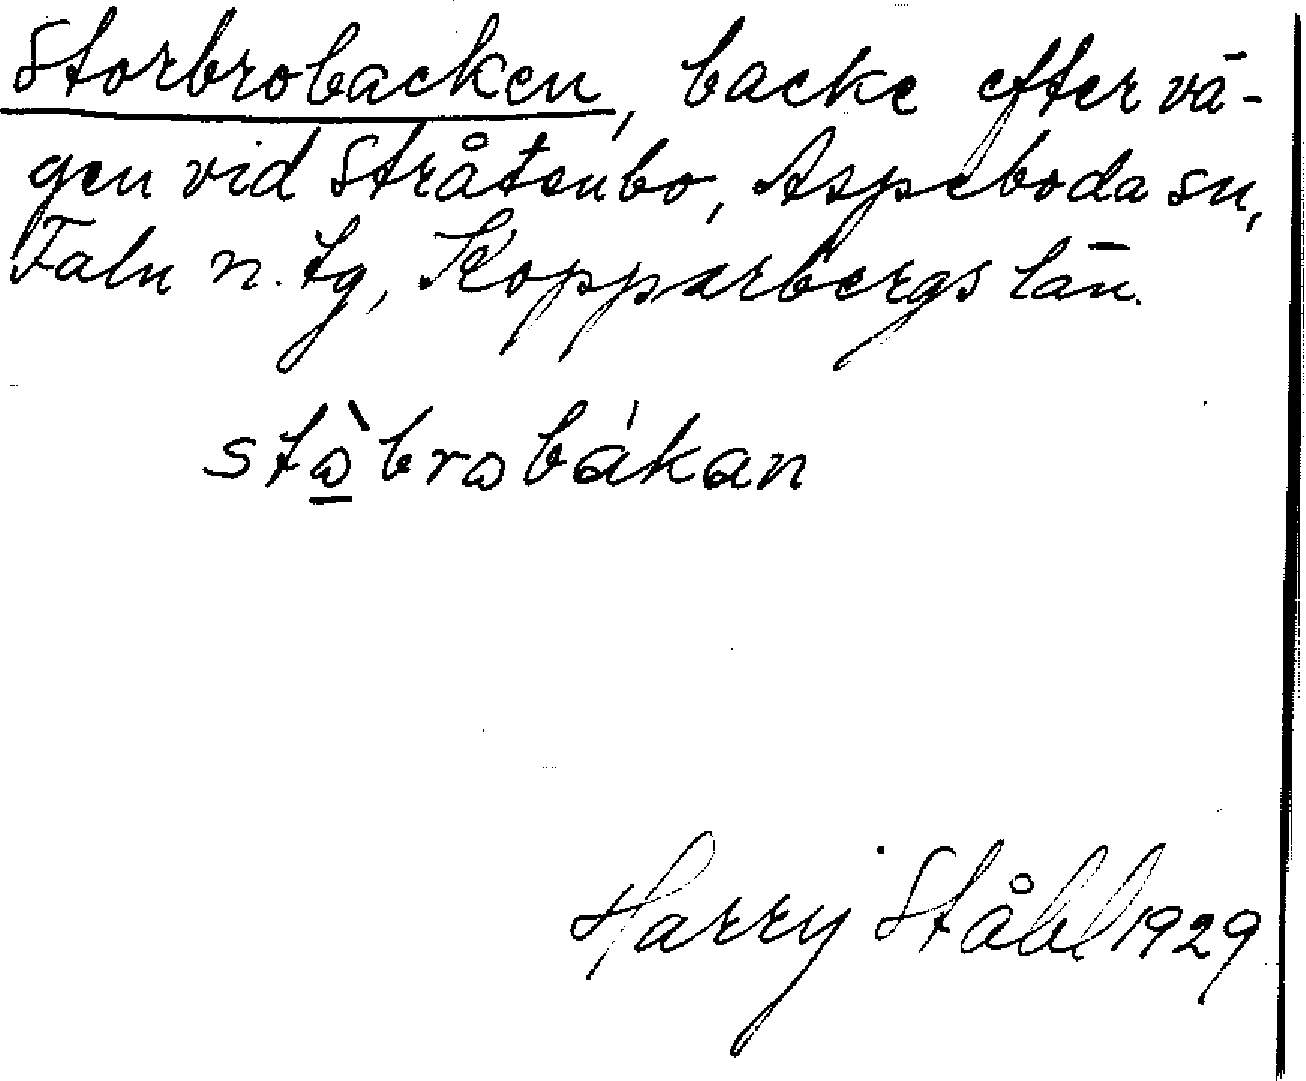 Storbrobacken, backe efter vä-
gen vid Stråtenbo, Aspeboda sn,
Falu n. tg, Kopparbergs län.
stɷ̲̀brɷbákan
Harry Ståhl 1929